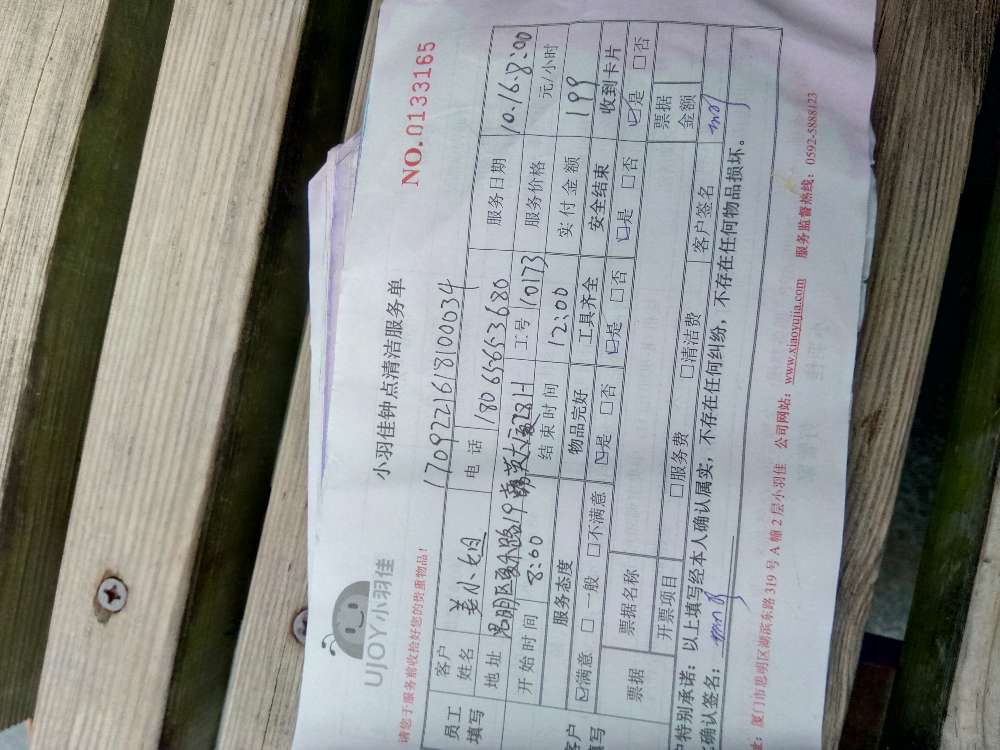 UJOY小羽佳
小羽佳钟点清洁服务单
NO.0133165
请您于服务前收拾好您的贵重物品!
1709221618100034
员工填写
客户姓名 姜小姐 电话 18065653680 服务日期 10.16.8:00
地址 思明区 19 工号 10173 服务价格 元/小时
开始时间 8:00 结束时间 12:00 实付金额 199
服务态度 物品完好 工具齐全 安全结束 收到卡片
☑满意 □一般 □不满意 ☑是 □否 ☑是 □否 ☑是 □否 ☑是 □否
票据 票据名称 票据金额
开票项目 □服务费 □清洁费 客户签名
户特别承诺:以上填写经本人确认属实,不存在任何纠纷,不存在任何物品损坏。
确认签名:
址:厦门市思明区湖滨东路319号A幢2层小羽佳 公司网站:www.xiaoyujia.com 服务监督热线:0592-5888123